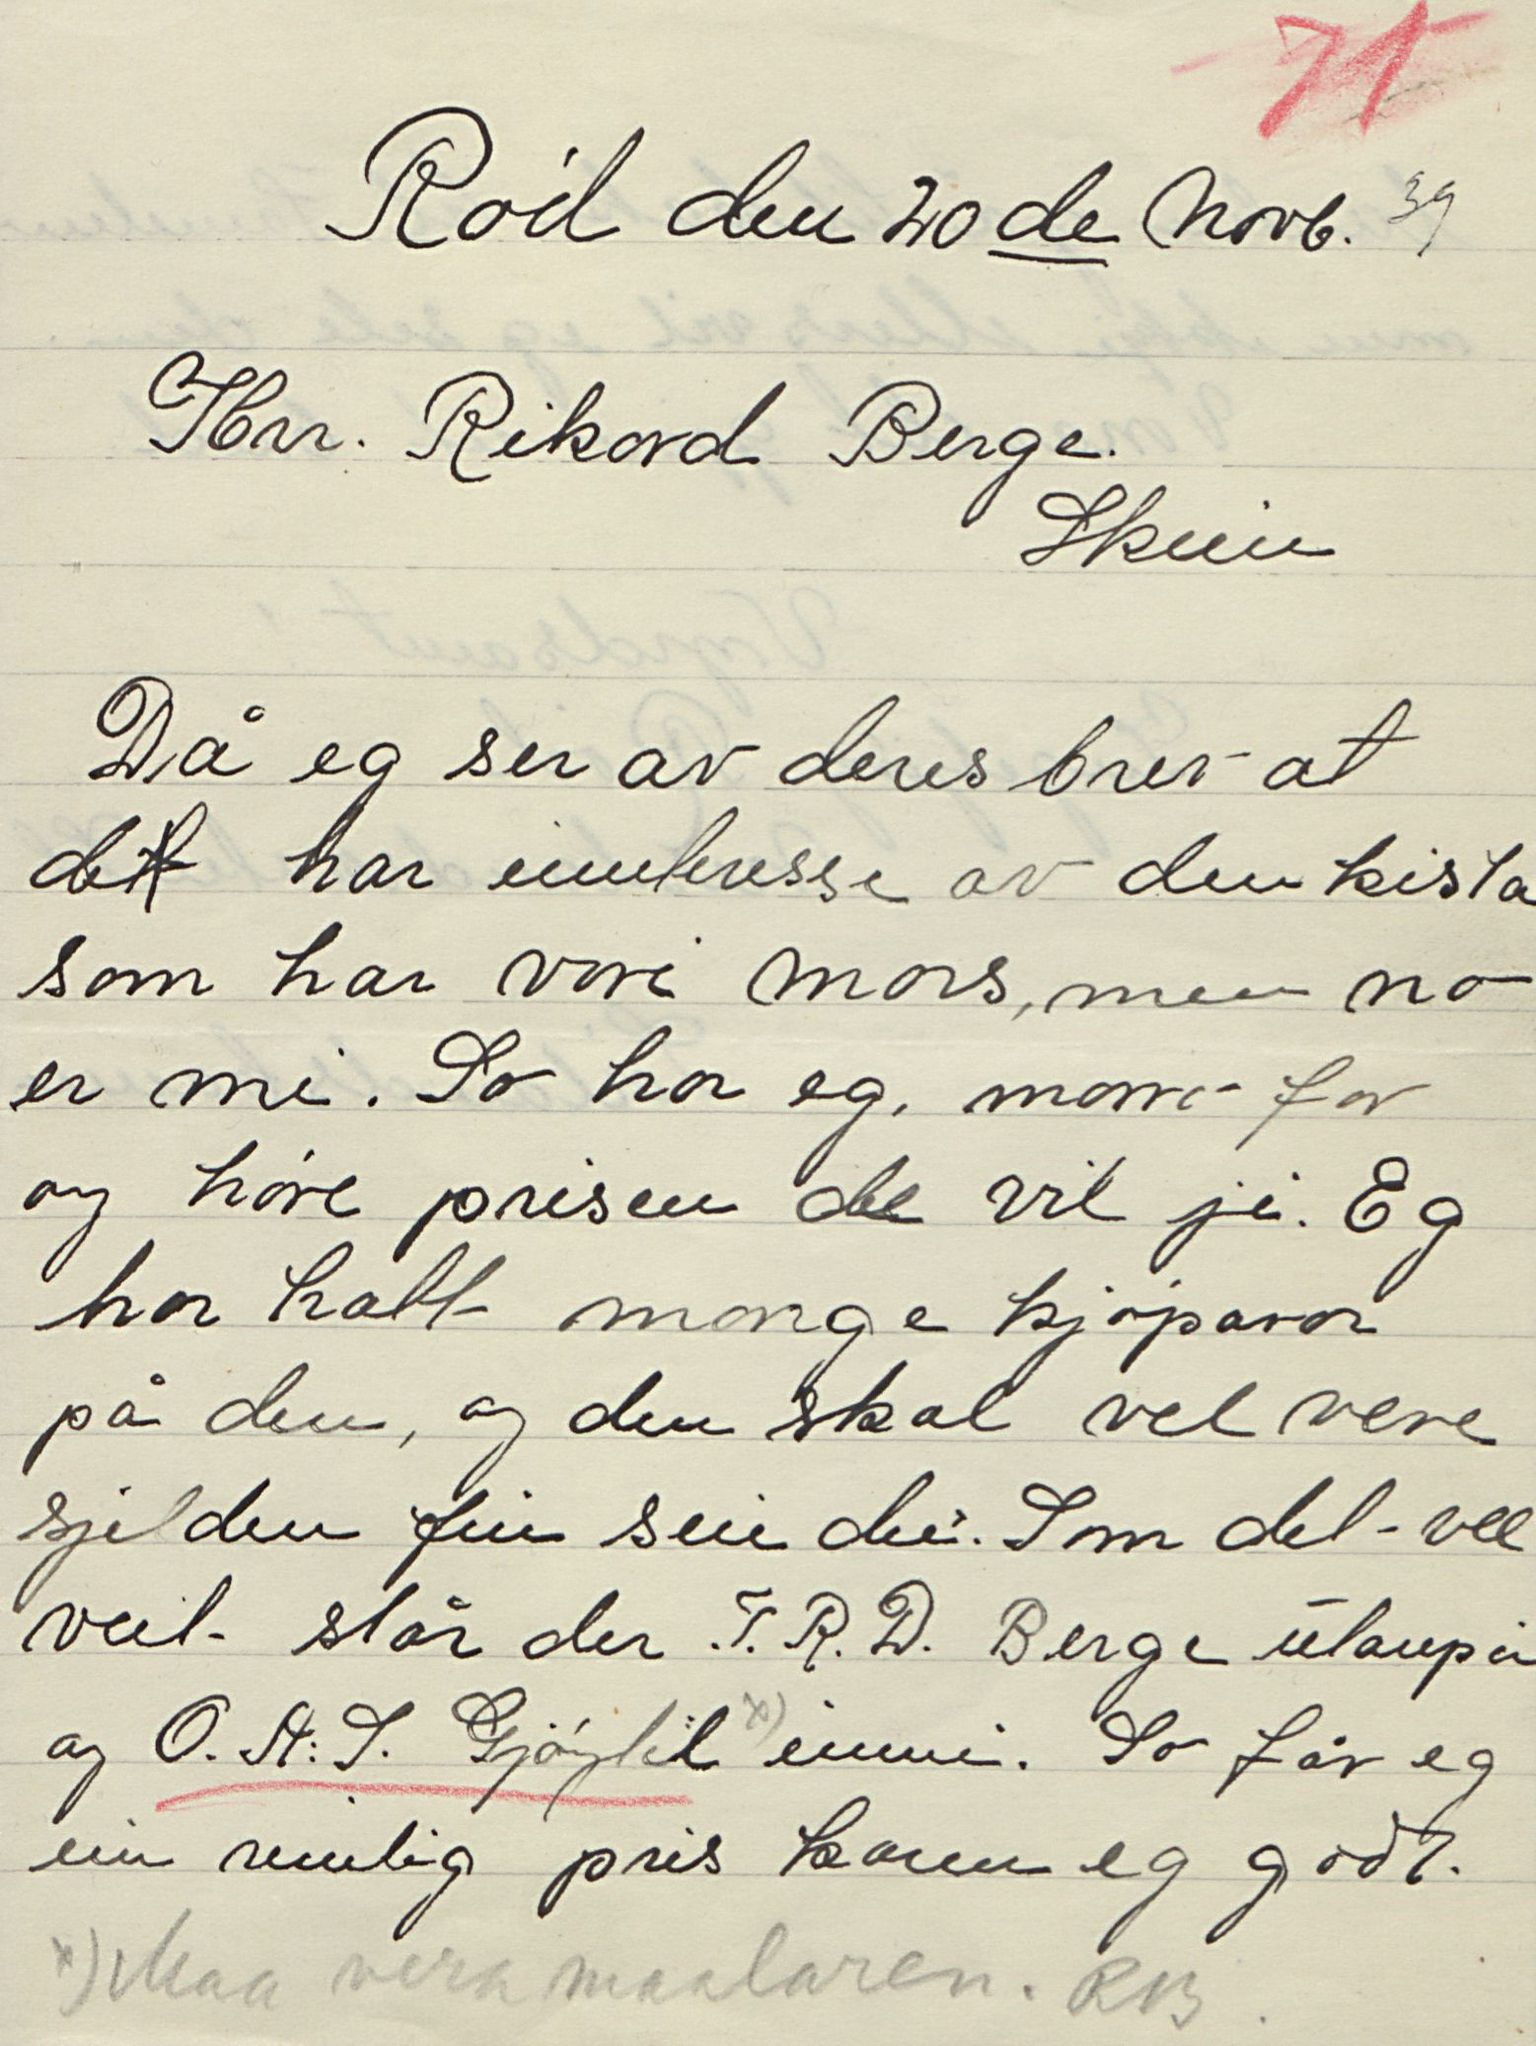 71
Roil den 20de Novb. 39
Hrr. Rikard Berge.
Skien
Då eg ser av deres brev at
det har innteresse av den kista
som har vori mors, men no
er mi. So har eg, moro for
og höre prisen de vil ji. Eg
har hatt mange kjöparar
på den, og den skal vel vere
sjelden fin sein dei. Som det vel
veit står der T. R. D. Berge utanpå
og O. A: S. Gjöylil x) inni. So får eg
ein rimlig pris kann eg godt.
x) Maa vera maalaren. RB.